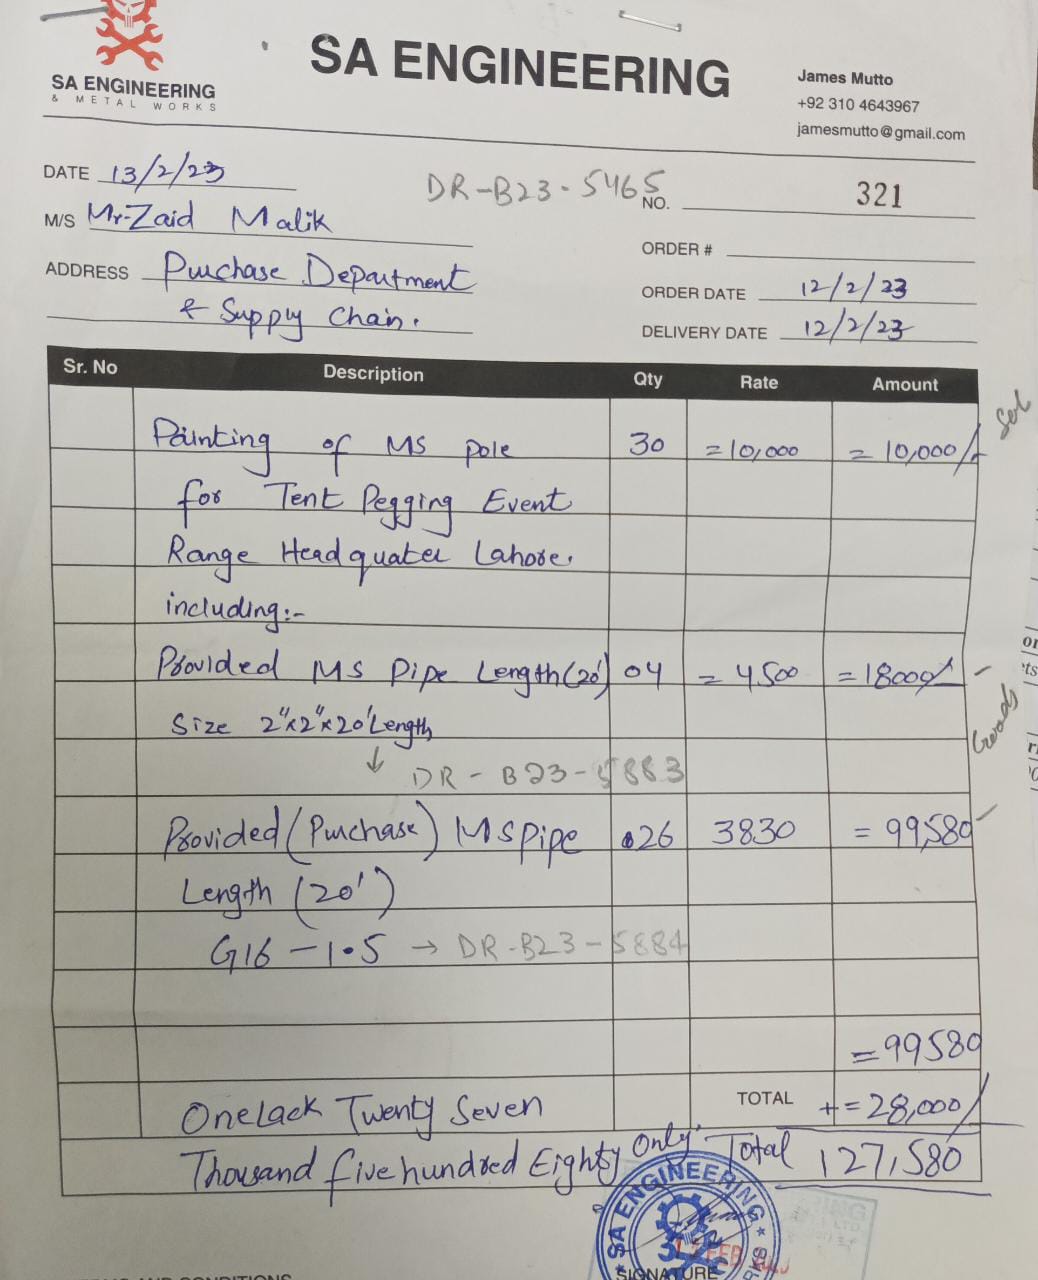 SA ENGINEERING
& METAL WORKS
SA ENGINEERING
James Mutto
+92 310 4643967
jamesmutto@gmail.com
DATE 13/2/23
DR-B23-5465
NO. 321
M/S Mr-Zaid Malik
ORDER #
ADDRESS Purchase Department
& Supply Chain.
ORDER DATE 12/2/23
DELIVERY DATE 12/2/23
Sr. No Description Qty Rate Amount
Painting of MS Pole 30 =10,000 = 10,000/-
for Tent Pegging Event
Range Headquater Lahore.
including:-
Provided MS Pipe Length(20') 04 = 4500 =18000/-
Size 2"x2"x20'Length
↓ DR-B23-5883
Goods
Provided (Purchase) MS Pipe 26 3830 = 99,580
Length (20')
G16 - 1.5 → DR-B23-5884
=99580
One lack Twenty Seven TOTAL +=28,000/
Thousand five hundred Eighty Only. Total 127,580
SA ENGINEERING
FEB
SIGNATURE